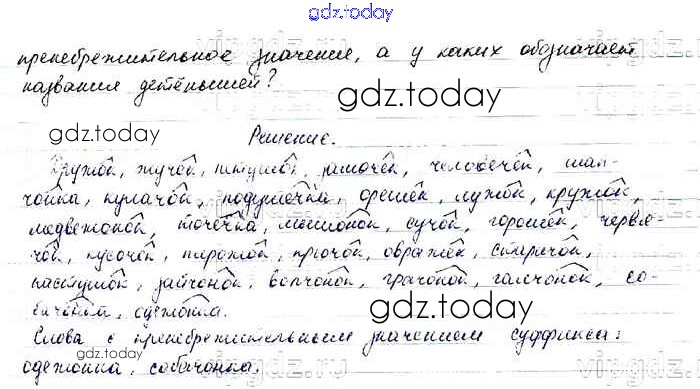 gdz.today
пренебрежительное значение, а у каких обозначает
названия детёнышей?
gdz.today
gdz.today
Решение.
Кружок, жучок, петушок, замочек, человечек, шап-
чонка, кулачок, подушечка, орешек, лужок, кружок,
медвежонок, точечка, мышонок, сучок, горошек, червя-
чок, кусочек, пирожок, крючок, овражек, старичок,
пастушок, зайчонок, волчонок, грачонок, галчонок, со-
бачонка, одежонка.
gdz.today
Слова с пренебрежительным значением суффикса:
gdz.today
одежонка, собачонка.